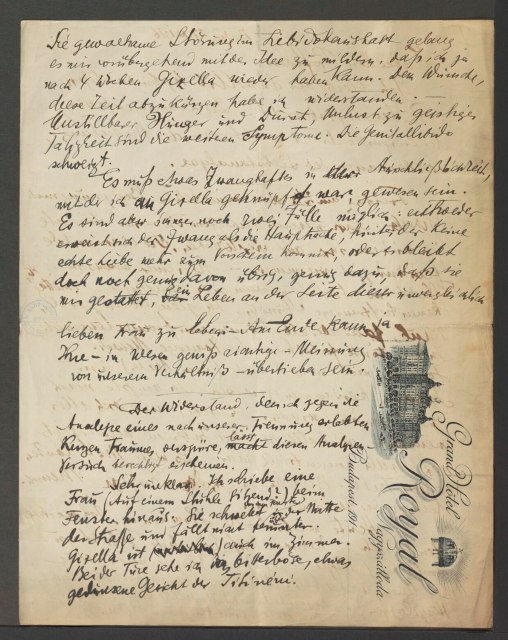 Die gewaltsame Störung im Libidohaushalt gelang
es mir vorübergehend mit der Idee zu mildern, daß ich ja
nach 4 Wochen Gizella wieder haben kann. Dem Wunsche,
diese Zeit abzukürzen habe ich widerstanden. —
Unstillbarer Hunger und Durst, Unlust zu geistiger
Tätigkeit sind die weiteren Symptome. Die Genitallibido
schweigt.
Es muß etwas Zwanghaftes in der Ausschließlichkeit,
mit der ich an Gizella geknüpft war gewesen sein.
Es sind aber immer noch zwei Fälle möglich: entweder
erweist sich der Zwang als die Hauptsache, hinter der keine
echte Liebe mehr zum Vorschein kommt, oder es bleibt
doch noch genug davon übrig, genug dazu, daß sie
mir gestattet, ein Leben an der Seite dieser unvergleichlichen
lieben Frau zu leben. — Am Ende kann ja
Ihre – im Wesen gewiß richtige – Meinung
von unserem Verhältniß – übertrieben sein.
Der Widerstand, den ich gegen die
Analyse eines nach unserer Trennung erlebten
kurzen Traumes verspüre, lässt diesen Analysen
versuch berechtigt erscheinen.
Sehr unklar. Ich schiebe eine
Frau (Auf einem Stuhle sitzend?) beim
Fenster hinaus. Sie schwebt in der Mitte
der Straße und fällt nicht herunter.
Gizella ist auch im Zimmer.
Bei der Türe sehe ich das bitterböse, etwas
gedunsene Gesicht der
Grand Hotel
Royal
Nagyszálloda
Budapest, 191